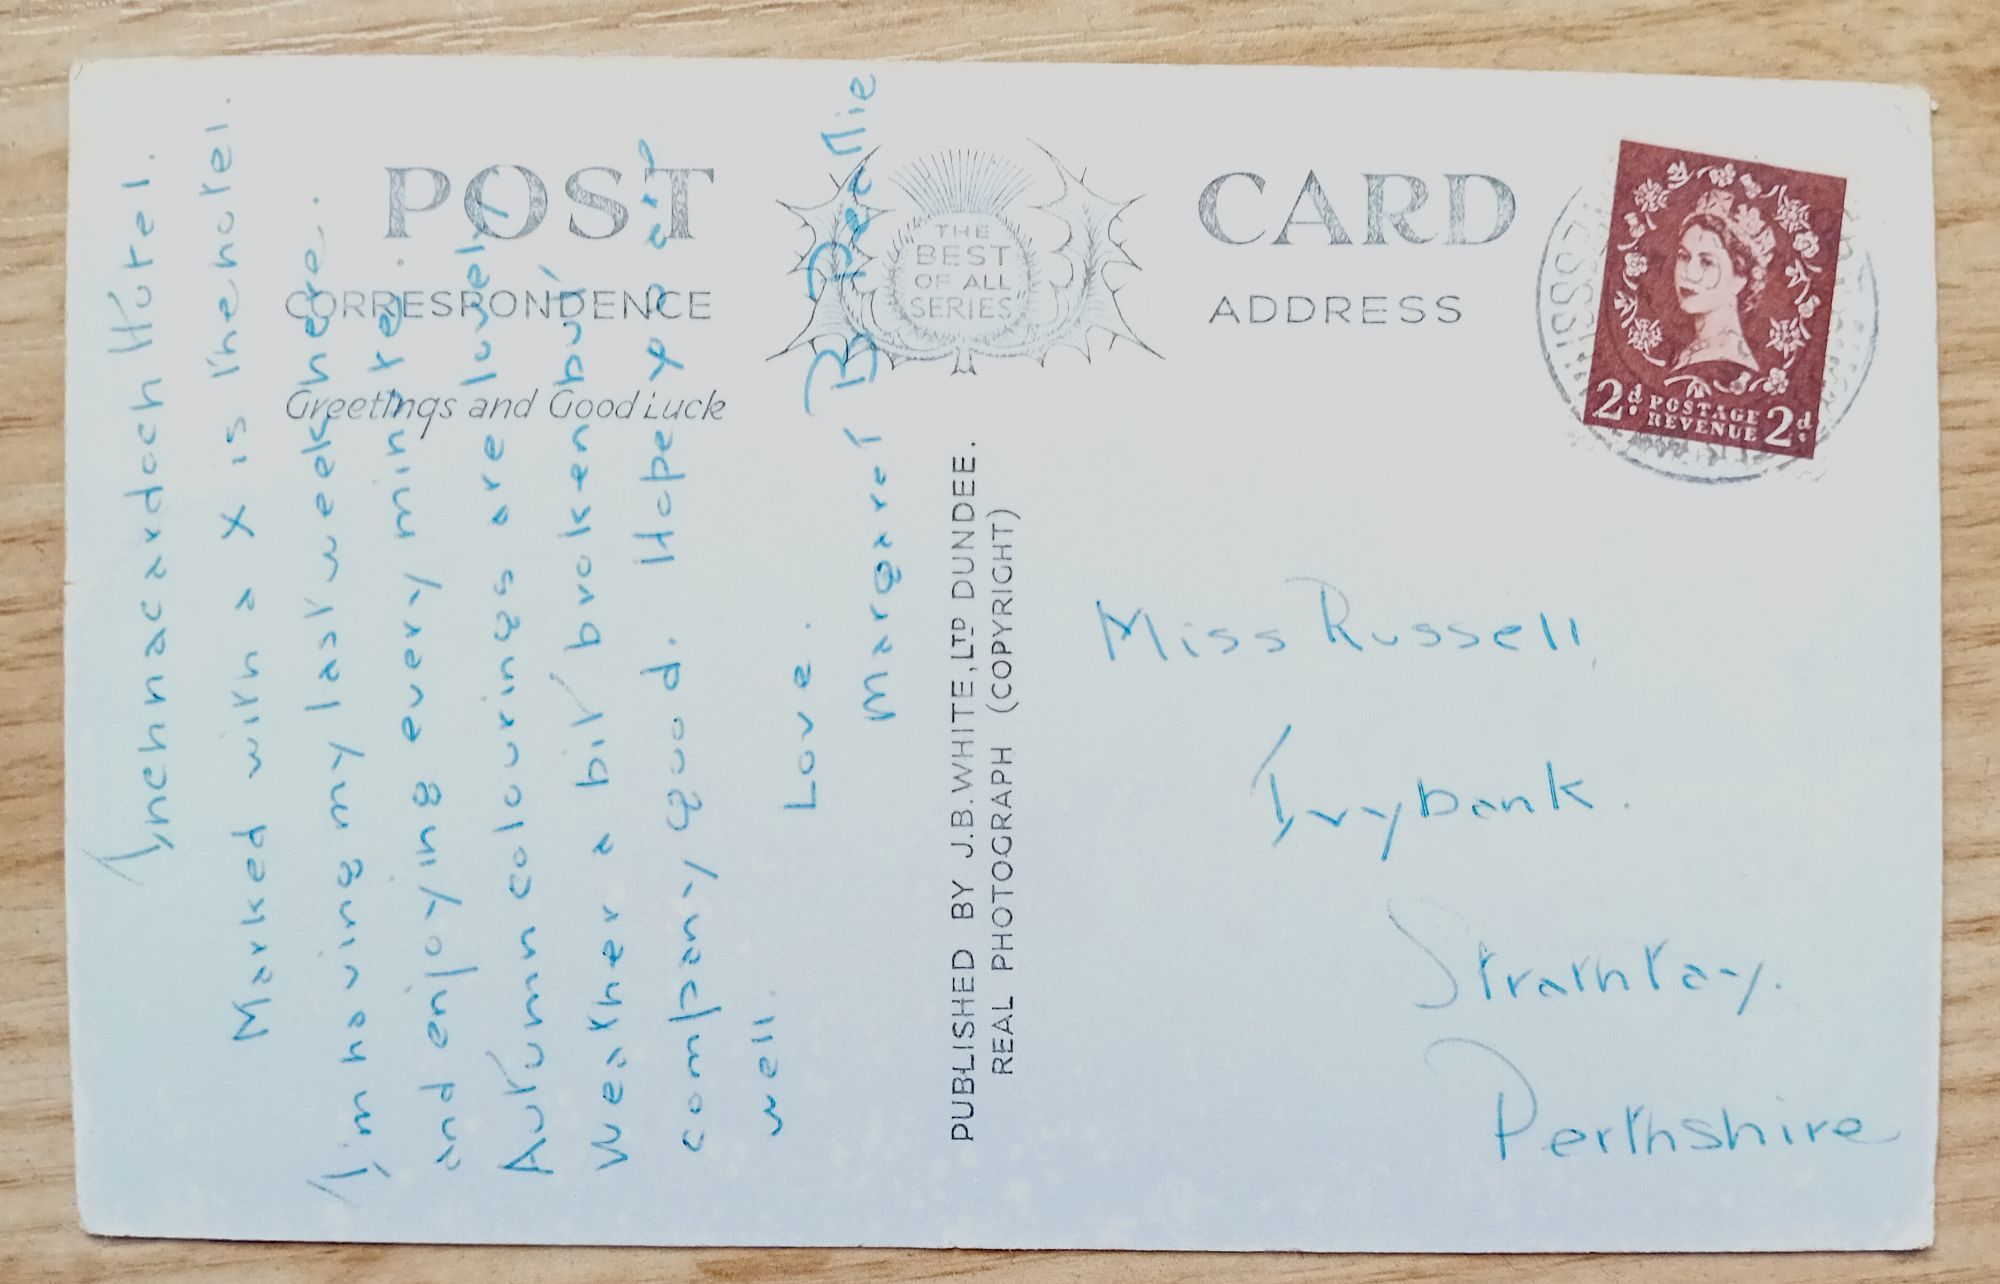 POST CARD
THE
BEST
OF ALL
SERIES
CORRESPONDENCE
ADDRESS
Greetings and Good Luck
2d. POSTAGE REVENUE 2d.
Inchnacardoch Hotel.
Marked with a X is the hotel.
I'm having my last week here.
and enjoying every minute.
Autumn colourings are lovely
Weather a bit broken but
company good. Hope you are
well.
Love.
Margaret B.
PUBLISHED BY J.B. WHITE, LTD DUNDEE.
REAL PHOTOGRAPH (COPYRIGHT)
Miss Russell
Ivybank.
Strathtay.
Perthshire